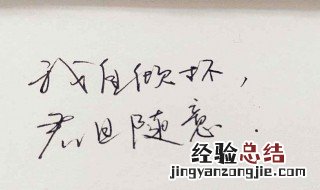 我自倾杯，
君且随意.
经验总结
www.jingyanzongjie.com